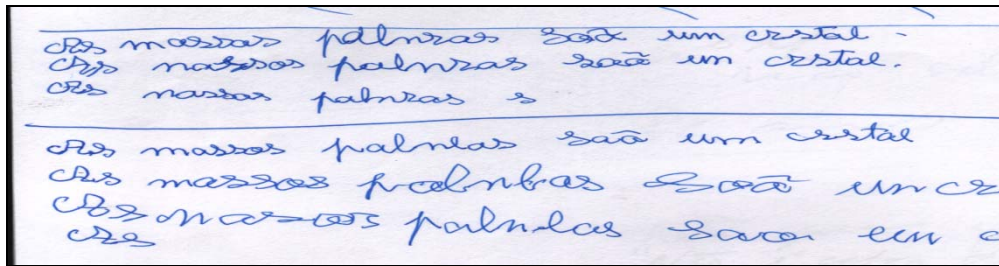 As massas palnras saã um crstal.
As nassos palnras saã um crstal.
As nassas palnras s
As massos palnlas saã um crstal
As massos palnlras saã um cr
As nassos palnlas saoa um c
As